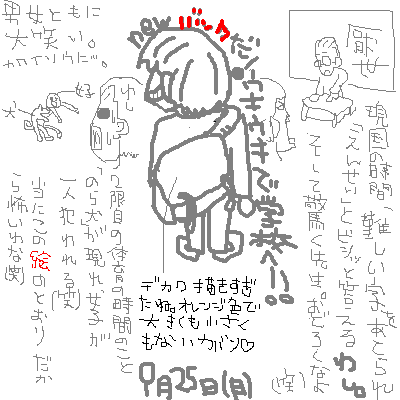 new バック
だ。ウキウキで学校へー!。
厭世
現国の時間 難しい字をあてられ
「えんせい」とビシッと答える わし。
そして驚く先生。おどろくなよ
(笑)
男女ともに
大咲い。
カワイソウだ。
犬
好
2限目の体育の時間のこと
のら犬が現れ女子が
一人犯われれる(笑)
当たつこの絵のとおりだか
ら怖いわな(笑)
デカク描きすぎ
たね。オレンジ色で
大きくも小さく
もないカバン♡
9月25日(月)